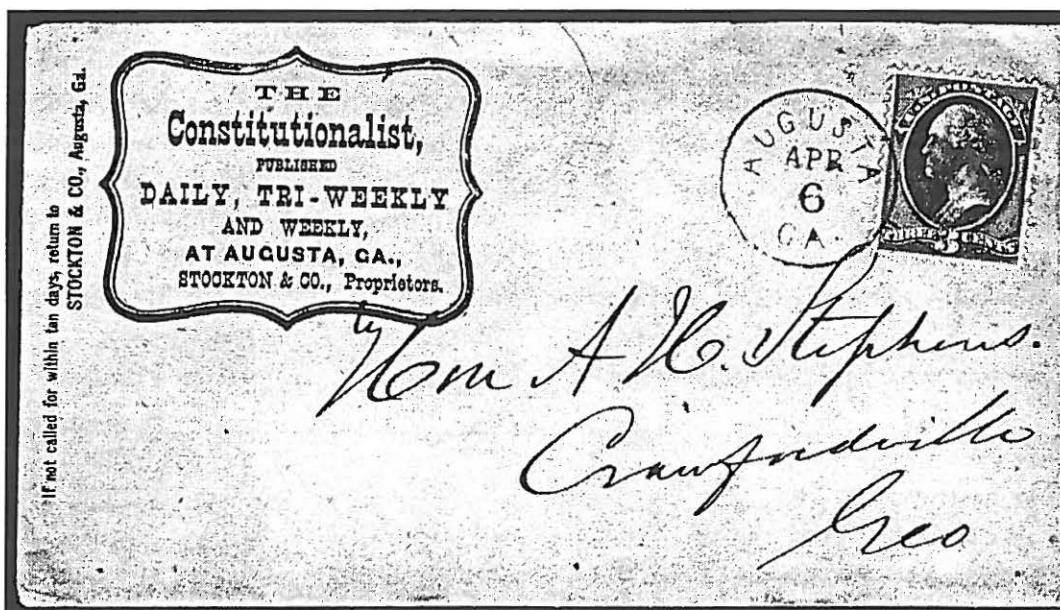 If not called for within ten days, return to
STOCKTON & CO., Augusta, Ga.
THE
Constitutionalist,
PUBLISHED
DAILY, TRI-WEEKLY
AND WEEKLY,
AT AUGUSTA, GA.,
STOCKTON & CO., Proprietors.
AUGUSTA
APR
6
GA.
U.S. POSTAGE
THREE 3 CENTS
Hon A H. Stephens.
Crawfordville
Geo